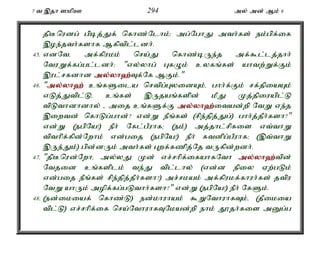 7 வ இதா ஸமிஊ 294 அல் அன் ஆம் 6
திடீரெனப் பிடித்துக் கொண்டோம்; அப்போது அவர்கள் நம்பிக்கை
இழந்தவர்களாக ஆகிவிட்டனர்.
45. எனவே, அக்கிரமம் செய்து கொண்டிருந்த அக்கூட்டத்தார்
வேரறுக்கப்பட்டனர்; "எல்லாப் புகழும் உலகங்கள் யாவற்றுக்கும்
இரட்சகனான அல்லாஹ்வுக்கே ஆகும்."
46. "அல்லாஹ் உங்களுடைய செவிப்புலனையும், பார்க்கும் சக்தியையும்
எடுத்துவிட்டு, உங்கள் இருதயங்களின் மீது முத்திரையிட்டு
விடுவானானால் , அதை உங்களுக்கு அல்லாஹ்வையன்றி வேறு எந்த
இறைவன் கொடுப்பான்? என்று நீங்கள் (சிந்தித்துப்) பார்த்தீர்களா?"
என்று (நபியே!) நீர் கேட்பீராக; (நம்) அத்தாட்சிகளை எவ்வாறு
விவரிக்கின்றோம் என்பதை (நபியே!) நீர் கவனிப்பீராக; (இவ்வாறு
இருந்தும்) பின்னரும் அவர்கள் புறக்கணித்தே வருகின்றனர்.
47. "திடீரென்றோ, அல்லது முன் எச்சரிக்கையாகவோ அல்லாஹ்வின்
வேதனை உங்களிடம் வந்து விட்டால் (என்ன நிலை ஏற்படும்
என்பதை நீங்கள் சிந்தித்தீர்களா?) அச்சமயம் அக்கிரமக்காரர்கள் தவிர
வேறு யாரும் அழிக்கப்படுவார்களா?" என்று (நபியே!) நீர் கேளும்.
48. (நன்மையைக் கொண்டு) நன்மாராயம் கூறுவோராகவும், (தீமையை
விட்டு) எச்சரிக்கை செய்வோராகவுமேயன்றி நாம் தூதர்களை அனுப்ப